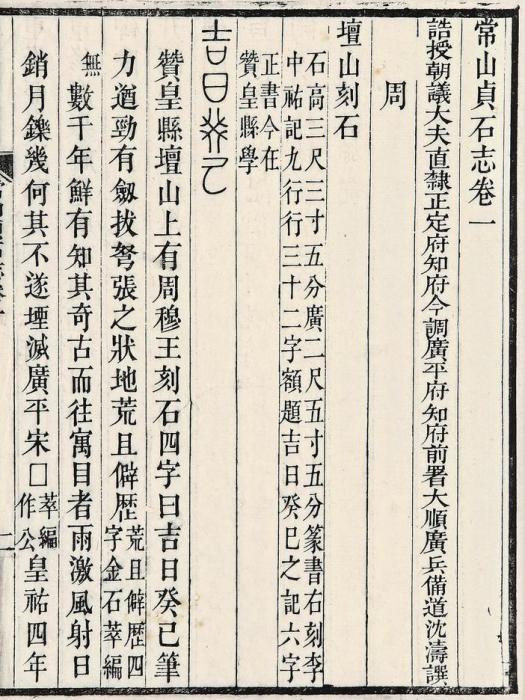 常山貞石志卷一
誥授朝議大夫直隸正定府知府今調廣平府知府前署大順廣兵備道沈濤譔
周
壇山刻石
石高三尺三寸五分廣二尺五寸五分篆書右刻李
中祐記九行行三十二字額題吉日癸巳之記六字
正書今在
贊皇縣學
吉日癸巳
贊皇縣壇山上有周穆王刻石四字曰吉日癸巳筆
力遒勁有劔拔弩張之狀地荒且僻歴荒且僻歴四字金石萃編
無數千年鮮有知其奇古而往寓目者雨激風射日
銷月鑠幾何其不遂堙滅廣平宋□萃編作公皇祐四年
二